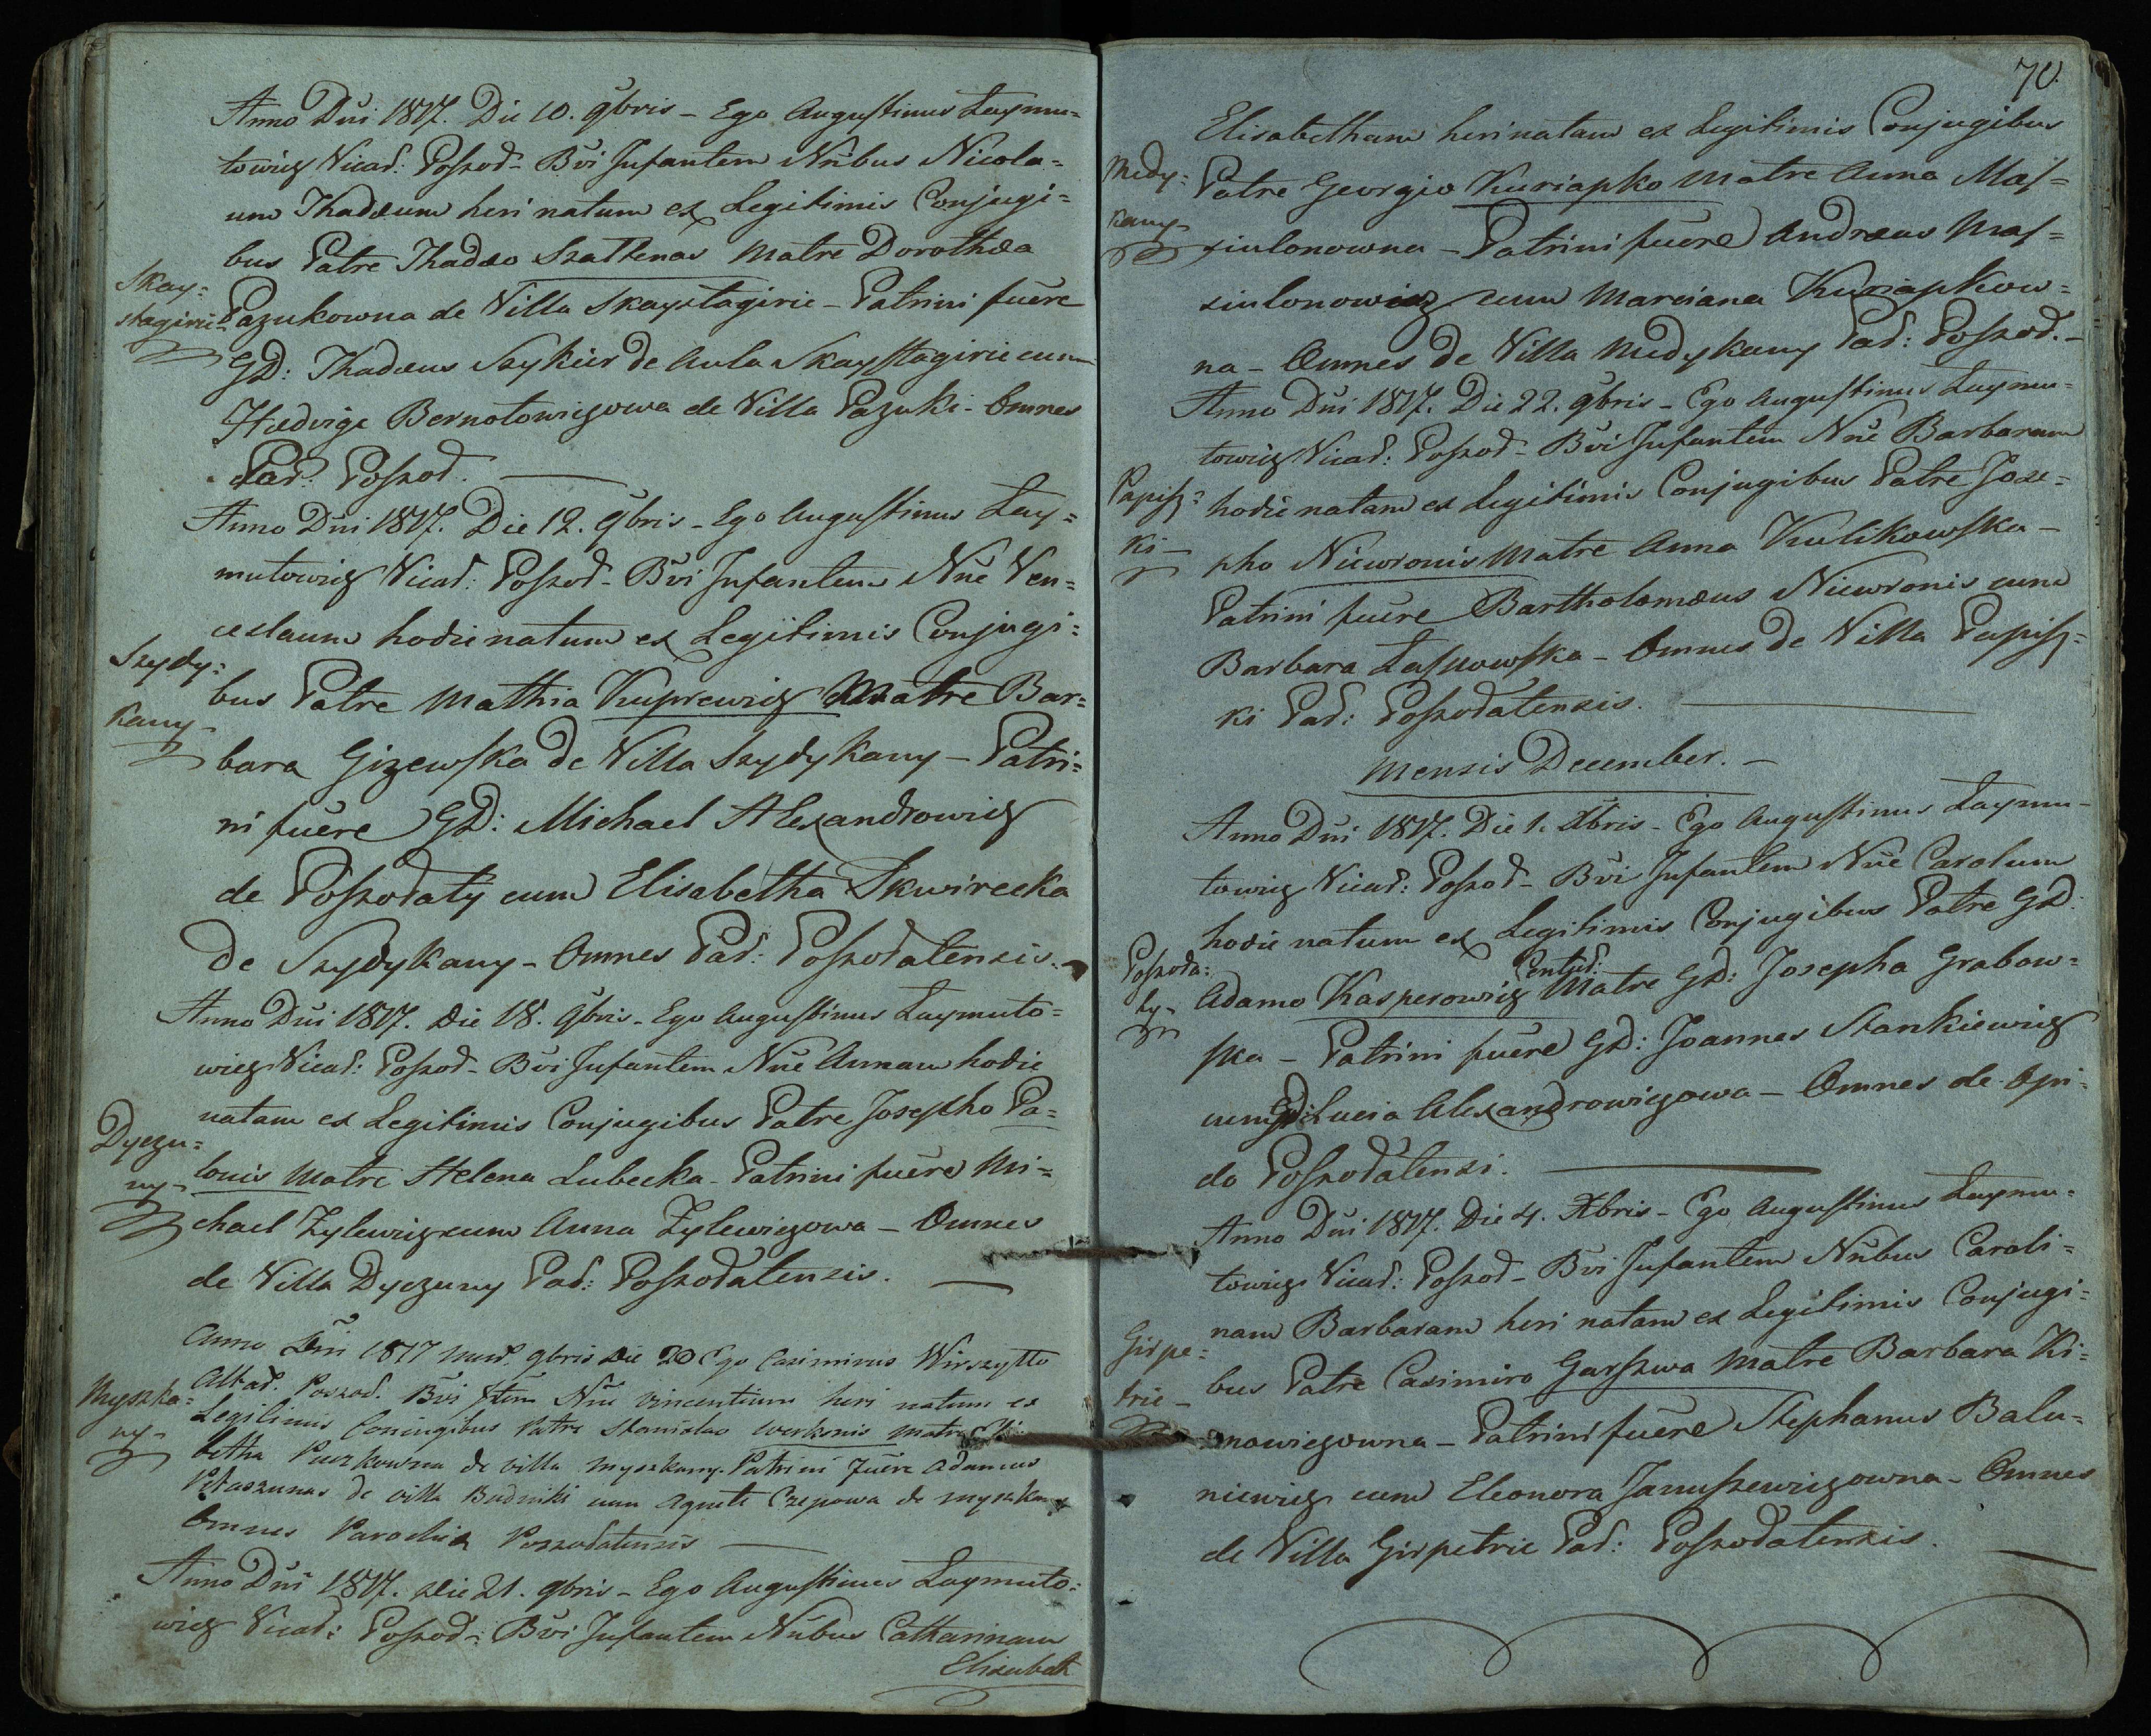 Anno Dñi 1817. Die 10. 9bris - Ego Augustinus Laymu=
towicz Vicar: Poszod- Bvi Infantem Nnibus Nicola=
um Thadæum heri natum ex Legitimis Conjugi=
bus Patre Thadæo Szattenas Matre Dorothæa
Skay=
stagirie
Pazukowna de Villa Skaystagirie - Patrini fuere
GD: Thadæus Szykier de Aula Skaystagirie cum
Hedvige Bernotowiczowa de Villa Pazuki - Omnes
Par: Poszod.
Anno Dñi 1817. Die 12. 9bris - Ego Augustinus Lay=
mutowicz Vicar: Poszod- Bvi Infantem Nñe Ven=
ceslaum hodie natum ex Legitimis Conjugi=
Szydy=
kany-
bus Patre Mathia Kuprewicz Matre Bar=
bara Gizewska de Villa Szydykany - Patri=
ni fuere GD: Michael Alexandrowicz
de Poszodaty cum Elisabetha Skwirecka
de Szydykany - Omnes Par: Poszodatensis.
Anno Dñi 1817. Die 18. 9bris - Ego Augustinus Laymuto=
wicz Vicar: Poszod- Bvi Infantem Nñe Annam hodie
natam ex Legitimis Conjugibus Patre Josepho Pa=
Dyczu=
ny-
lonis Matre Helena Lubecka - Patrini fuere Mi=
chael Zylewicz cum Anna Zylewiczowa - Omnes
de Villa Dyczuny Par: Poszodatensis.
Anno Dñi 1817 9bris Die 20 Ego Casimirus Wirszyłło
Altar. Poszod. Bvi Nñe Vincentium heri natum ex
Myszka=
ny-
Legitimis Coniugibus Patre Stanislao Werkonis Matre Eli
betha Puszkowna de villa Myszkany. Patrini fuere Adamus
Ptaszunas de villa Budniki cum Agnete Czepowa de Myszkany
Omnes Parochiæ Poszodatensis
Anno Dñi 1817. Die 21. 9bris - Ego Augustinus Laymuto=
wicz Vicar: Poszod- Bvi Infantem Nnibus Catharinam
Elisabeth
70.
Elisabetham heri natam ex Legitimis Conjugibus
Medy=
kany-
Patre Georgio Kuriapko Matre Anna Mas=
siulonowna - Patrini fuere Andreas Mas=
siulonowicz cum Marciana Kuriapkow=
na - Omnes de Villa Medykany Par: Poszod.-
Anno Dñi 1817. Die 22. 9bris - Ego Augustinus Laymu=
towicz Vicar: Poszod- Bvi Infantem Nñe Barbaram
Papisz=
ki-
hodie natam ex Legitimis Conjugibus Patre Jose=
pho Niewronis Matre Anna Kulikowska -
Patrini fuere Bartholomæus Niewronis cum
Barbara Laskowska - Omnes de Villa Papisz=
ki Par: Poszodatensis.
Mensis December.-
Anno Dñi 1817. Die 1. Xbris - Ego Augustinus Laymu-
towicz Vicar: Poszod- Bvi Infantem Nñe Carolum
hodie natum ex Legitimis Conjugibus Patre GD:
Poszoda=
ty-
Adamo Kasperowicz Matre GD: Josepha Grabow=
ska - Patrini fuere GD: Joannes Stankiewicz
cum GD: Lucia Alexandrowiczowa - Omnes de Opi=
do Poszodatensi.
Anno Dñi 1817. Die 4. Xbris - Ego Augustinus Laymu=
towicz Vicar: Poszod- Bvi Infantem Nnibus Caroli=
nam Barbaram heri natam ex Legitimis Conjugi=
Girpe=
trie-
bus Patre Casimiro Garszwa Matre Barbara Ki=
mowiczowna - Patrini fuere Stephanus Balu=
niewicz cum Eleonora Januszewiczowna - Omnes
de Villa Girpetrie Par: Poszodatensis.